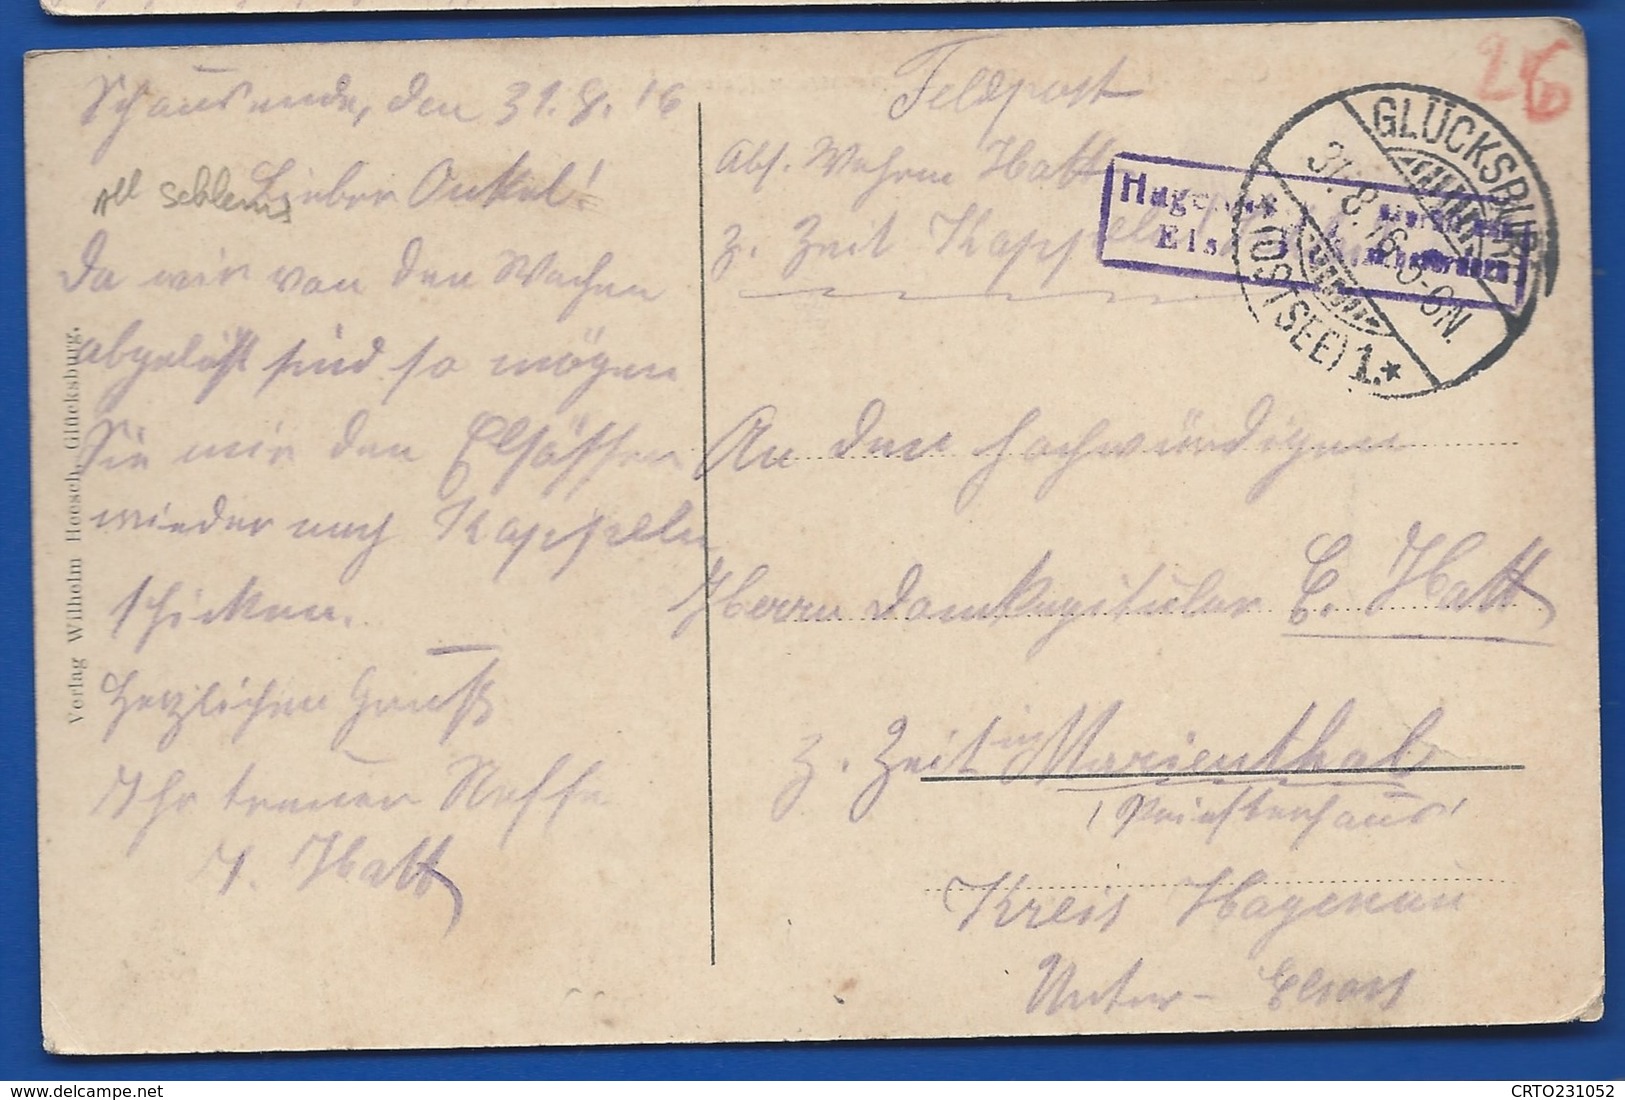 Schausende, den 31.8.16
All Schleswi
Lieber Onkel!
Da wir von den Wachen
abgelöst sind so mögen
Sie mir den Elsässer
wieder nach Kappeln
schicken.
Herzlichen Gruß
Ihr treuer Neffe
J. Hatt
Verlag Wilhelm Heesch, Glücksburg.
Feldpost
Abs. Wehrm Hatt
z. Zeit Kappeln
Hagen
Els
26
GLÜCKSBURG
31.8.16. 6-7N.
* (OSTSEE) 1. *
An den hochwürdigen
Herrn Domkapitular E. Hatt
z. Zeit in Marienthal
(Priesterhaus)
Kreis Hagenau
Unter-Elsass
delcampe.net
CRTO231052